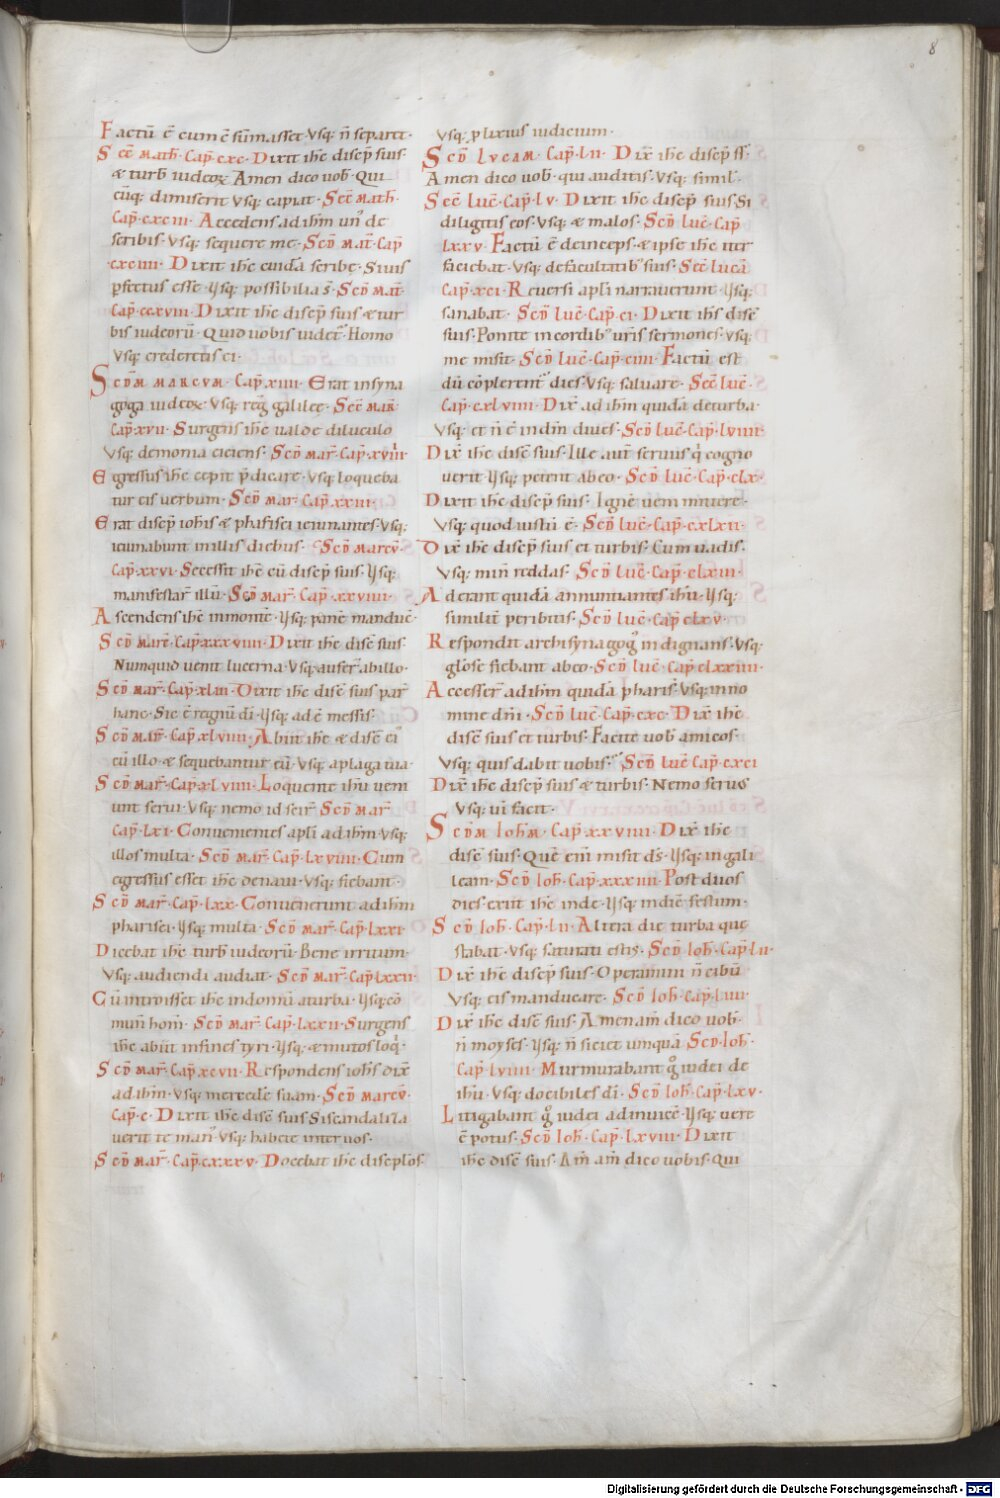 8
Factū ē cum c̄sūmasset · Vsq; n̄ separet ·
Scd̄ math̄ · Cap̄ · cxc · Dixit ih̄c discip̄ suis ·
& turb̄ iudeoꝝ Amen dico vob̄ · Qui
cūq; dimiserit Vsq; capiat · Scd̄ math̄ ·
Cap̄ · cxciii · Accedens ad ih̄m un' de
scribis · Vsq; sequere me · Scd̄ mat̄ · Cap̄
· cxciiii · Dixit ih̄c cuidā scribę · Si uis
p̄fectus esse · Vsq; possibilia s̄ · Scd̄ mat̄ ·
Cap̄ · ccxviii · Dixit ih̄c discip̄ suis & tur
bis iudeorū · Quid uobis uidet̄ · Homo
Vsq; credentis ei ·
Scdm̄ marcvm · Cap̄ · xiiii · Erat in syna
goga iudeoꝝ · Vsq; reḡ galileę · Scd̄ mar̄ ·
Cap̄ · xvii · Surgens ih̄c ualde diluculo
Vsq; demonia eiciens · Scd̄ mar̄ · Cap̄ · xviii
Egressus ih̄c cepit p̄dicare · Vsq; loqueba
tur eis verbum · Scd̄ mar̄ · Cap̄ · xxiii ·
Erat discip̄ ioh̄is & pharisei ieiunantes · Vsq;
ieiunabunt in illis diebus · Scd̄ marcv̄ ·
Cap̄ · xxvi · Secessit ih̄c cū discip̄ suis · Vsq;
manifestar̄ illū · Scd̄ mar̄ · Cap̄ · xxviiii ·
Ascendens ih̄c in monte · Vsq; panē manduc̄ ·
Scd̄ marc̄ · Cap̄ · xxxviiii · Dixit ih̄c disc̄ suis
Numquid uenit lucerna · Vsq; aufer̄ ab illo ·
Scd̄ mar̄ · Cap̄ · xliii · Dixit ih̄c disc̄ suis par̄
hanc · Sic ē regnū dī · Vsq; adē messis ·
Scd̄ mar̄ · Cap̄ · xlviiii · Abiit ih̄c & disc̄ ei'
cū illo & sequebantur eū · Vsq; a plaga tua ·
Scd̄ mar̄ · Cap̄ · xlviiii · Loquente ih̄u veni
unt serui · Vsq; nemo id scir̄ Scd̄ mar̄
Cap̄ · lxi · Conuenientes apl̄i ad ih̄m · Vsq;
illos multa · Scd̄ mar̄ · Cap̄ · lxviiii · Cum
egressus esset ih̄c de naui · Vsq; fiebant ·
Scd̄ mar̄ · Cap̄ · lxx · Conuenerunt ad ih̄m
pharisei · Vsq; multa · Scd̄ mar̄ · Cap̄ · lxxi ·
Dicebat ih̄c turb̄ iudeorū · Bene irritum ·
Vsq; audiendi audiat · Scd̄ mar̄ · Cap̄ · lxxii
Cū introisset ih̄c in domū a turba · Vsq; cō
mun̄ hom̄ · Scd̄ mar̄ · Cap̄ · lxxii · Surgens
ih̄c abiit in fines tyri · Vsq; & mutos loq̄ ·
Scd̄ mar̄ · Cap̄ · xcvii · Respondens ioh̄s dix̄
ad ih̄m · Vsq; mercedē suam · Scd̄ marcv̄ ·
Cap̄ · c · Dixit ih̄c disc̄ suis Si scandaliza
uerit te man' · Vsq; habete inter uos ·
Scd̄ mar̄ · Cap̄ · cxxxv · Docebat ih̄c discip̄los ·
Vsq; p̄lixius iudicium ·
Scd̄ lvcam · Cap̄ · lii · Dix̄ ih̄c discip̄ ss̄
Amen dico vob̄ · qui auditis · Vsq; simil̄ ·
Scd̄ luc̄ · Cap̄ · lv · Dixit ih̄c discip̄ suis Si
diligitis eos · Vsq; & malos · Scd̄ luc̄ · Cap̄
lxxv · Factū ē deinceps · & ipse ih̄c iter
faciebat · Vsq; de facultatib' suis · Scd̄ lucā
Cap̄ · xci · Reuersi apl̄i narrauerunt · Vsq;
sanabat · Scd̄ luc̄ · Cap̄ · ci · Dixit ih̄s disc̄
suis · Ponite in cordib' ur̄is sermones · Vsq;
me misit · Scd̄ luc̄ · Cap̄ · ciiii · Factū est
dū cōplerent̄ dies · Vsq; saluare · Scd̄ luc̄ ·
Cap̄ · cxlviiii · Dix̄ ad ih̄m quidā de turba ·
Vsq; et n̄ ē in dm̄ diues · Scd̄ luc̄ · Cap̄ · lviiii ·
Dix̄ ih̄c disc̄ suis · Ille aut̄ seruus q̄ cogno
uerit · Vsq; petent ab eo · Scd̄ luc̄ · Cap̄ · clx ·
Dixit ih̄c discip̄ suis · Ignē veni mittere ·
Vsq; quod iustū ē · Scd̄ luc̄ · Cap̄ · cxlxii ·
Dix̄ ih̄c discip̄ suis et turbis · Cum uadis ·
Vsq; min̄ reddas · Scd̄ luc̄ · Cap̄ · clxiii ·
Aderant quidā annuntiantes ih̄u · Vsq;
similit̄ peribitis · Scd̄ luc̄ · Cap̄ · clxv ·
Respondit archisynagog' indignans · Vsq;
gl̄ose fiebant ab eo · Scd̄ luc̄ · Cap̄ · clxxiiii ·
Accesser̄ ad ih̄m quidā pharis̄ · Vsq; in no
mine dn̄i · Scd̄ luc̄ · Cap̄ · cxc · Dix̄ ih̄c
disc̄ suis et turbis · Facite vob̄ amicos ·
Vsq; quis dabit uobis · Scd̄ luc̄ Cap̄ · cxci
Dix̄ ih̄c discip̄ suis & turbis · Nemo seruus
Vsq; ui facit ·
Scdm̄ Ioh̄m · Cap̄ · xxviiii · Dix̄ ih̄c
disc̄ suis · Quē em̄ misit ds̄ · Vsq; in gali
leam · Scd̄ Ioh̄ · Cap̄ · xxxiiii · Post duos
dies exiit ih̄c inde · Vsq; in diē festum ·
Scd̄ Ioh̄ · Cap̄ · lii · Altera die turba que
stabat · Vsq; saturati estis · Scd̄ Ioh̄ · Cap̄ · lii ·
Dix̄ ih̄c discip̄ suis · Operamini n̄ cibū
Vsq; eis manducare · Scd̄ Ioh̄ · Cap̄ · liiii ·
Dix̄ ih̄c disc̄ suis · Amen am̄ dico vob̄ ·
n̄ moyses · Vsq; n̄ siciet umquā Scd̄ · Ioh̄ ·
Cap̄ · lviiii · Murmurabant g̊ iudei de
ih̄u · Vsq; docibiles dī · Scd̄ Ioh̄ · Cap̄ · lxv ·
Litigabant g̊ iudei ad inuicē · Vsq; uere
ē potus · Scd̄ Ioh̄ · Cap̄ · lxviii · Dixit
ih̄c disc̄ suis · Am̄ am̄ dico uobis · Qui
Digitalisierung gefördert durch die Deutsche Forschungsgemeinschaft - DFG